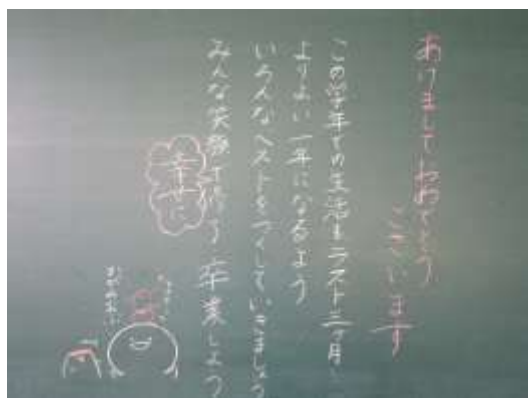 あけましておめでとう
ございます
この学年での生活もラスト三ヶ月
よりよい一年になるよう
いろんなベストをつくしていきましょう
みんな笑顔で修了 卒業しよう
幸せに